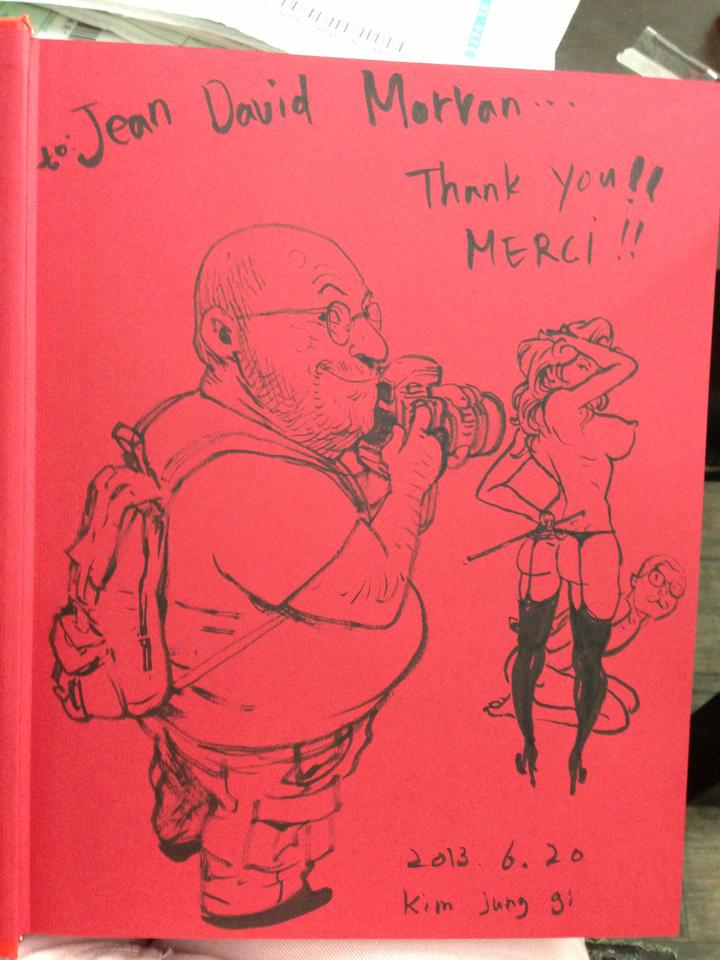 to: Jean David Morvan...
Thank you!!
MERCi!!
2013. 6. 20
kim jung gi